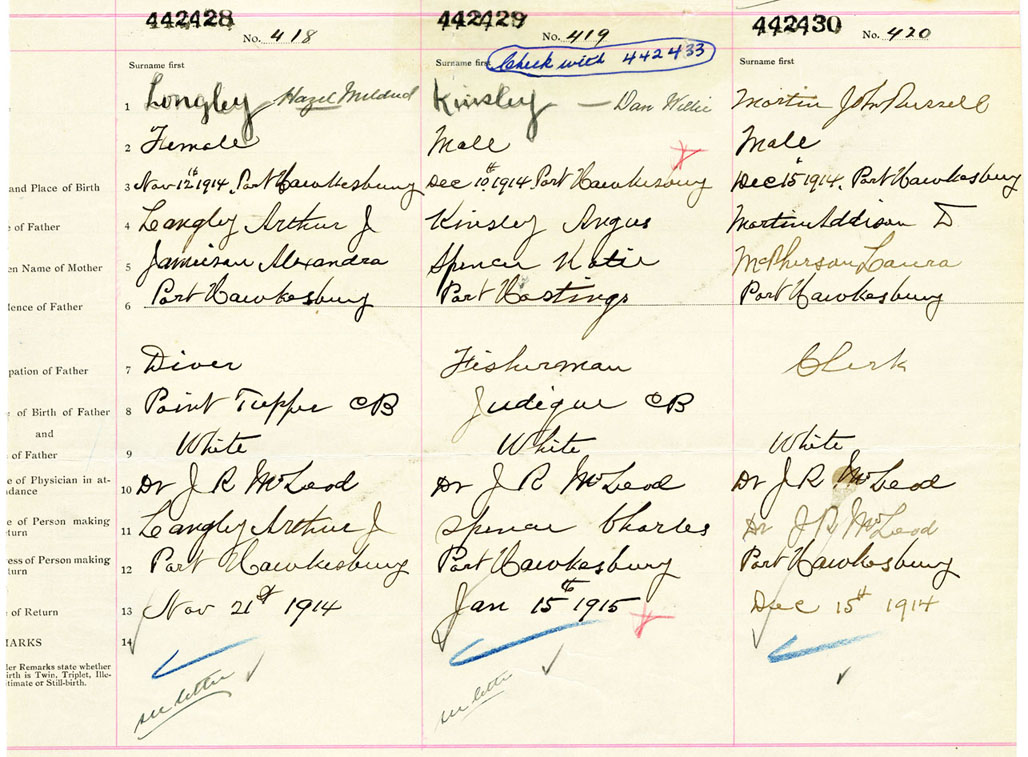 442428 442429 442430
No. 418 No. 419 No. 420
Check with 442433
Surname first Surname first Surname first
1 Longley Hazel Mildred Kinsley — Dan Willie Martin John Russell
2 Female Male Male
and Place of Birth 3 Nov 12th 1914, Port Hawkesbury Dec 10th, 1914, Port Hawkesbury Dec 15 1914, Port Hawkesbury
e of Father 4 Langley Arthur J Kinsley Angus Martin Addison D
en Name of Mother 5 Jamieson Alexandra Spencer Katie McPherson Laura
dence of Father 6 Port Hawkesbury Port Hastings Port Hawkesbury
pation of Father 7 Diver Fisherman Clerk
e of Birth of Father 8 Point Tupper CB Judique CB
and
n of Father 9 White White White
e of Physician in at-
dance 10 Dr J R McLeod Dr J R McLeod Dr J R McLeod
e of Person making
turn 11 Langley Arthur J Spencer Charles Dr J R McLeod
ress of Person making
turn 12 Port Hawkesbury Port Hawkesbury Port Hawkesbury
of Return 13 Nov 21st 1914 Jan 15th 1915 Dec 15th 1914
MARKS 14
der Remarks state whether
irth is Twin, Triplet, Ille-
timate or Still-birth.
see letter see letter